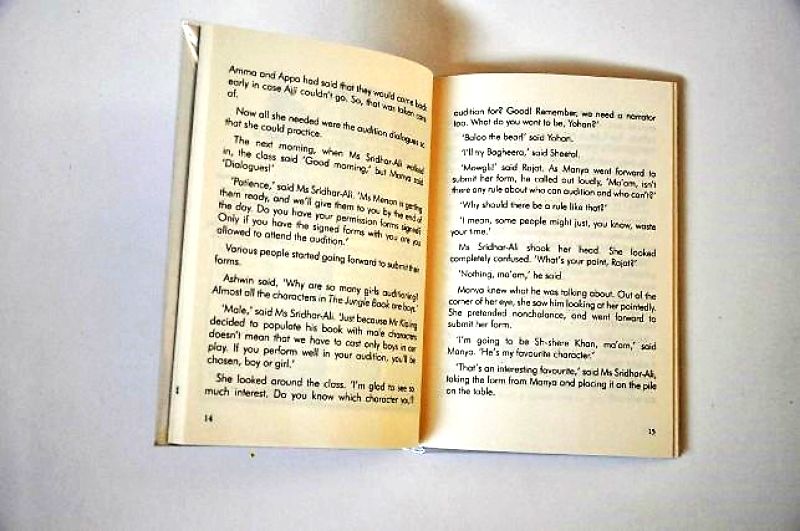 Amma and Appa had said that they would come back
early in case Ajji couldn't go. So, that was taken care
of.
Now all she needed were the audition dialogues so
that she could practice.
The next morning, when Ms Sridhar-Ali walked
in, the class said 'Good morning,' but Manya said
'Dialogues!'
'Patience,' said Ms Sridhar-Ali. 'Ms Menon is getting
them ready, and we'll give them to you by the end of
the day. Do you have your permission forms signed?
Only if you have the signed forms with you are you
allowed to attend the audition.'
Various people started going forward to submit their
forms.
Ashwin said, 'Why are so many girls auditioning?
Almost all the characters in The Jungle Book are boys.'
'Male,' said Ms Sridhar-Ali. 'Just because Mr Kipling
decided to populate his book with male characters
doesn't mean that we have to cast only boys in our
play. If you perform well in your audition, you'll be
chosen, boy or girl.'
She looked around the class. 'I'm glad to see so
much interest. Do you know which character you'll
14
audition for? Good! Remember, we need a narrator
too. What do you want to be, Yohan?'
'Baloo the bear!' said Yohan.
'I'll try Bagheera,' said Sheetal.
'Mowgli!' said Rajat. As Manya went forward to
submit her form, he called out loudly, 'Ma'am, isn't
there any rule about who can audition and who can't?'
'Why should there be a rule like that?'
'I mean, some people might just, you know, waste
your time.'
Ms Sridhar-Ali shook her head. She looked
completely confused. 'What's your point, Rajat?'
'Nothing, ma'am,' he said.
Manya knew what he was talking about. Out of the
corner of her eye, she saw him looking at her pointedly.
She pretended nonchalance, and went forward to
submit her form.
'I'm going to be Sh-shere Khan, ma'am,' said
Manya. 'He's my favourite character.'
'That's an interesting favourite,' said Ms Sridhar-Ali,
taking the form from Manya and placing it on the pile
on the table.
15